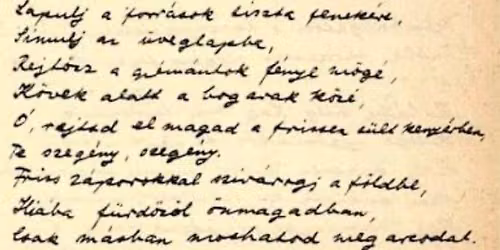 Lapulj a források tiszta fenekére,
Simulj az üveglapba,
Rejtőzz a gyémántok fénye mögé,
Kövek alatt a bogarak közé,
Ó, rejtsd el magad a frissen sült kenyérben,
Te szegény, szegény.
Friss záporokkal szivárogj a földbe,
Hiába fürdözöl önmagadban,
Csak másban moshatod meg arcodat.